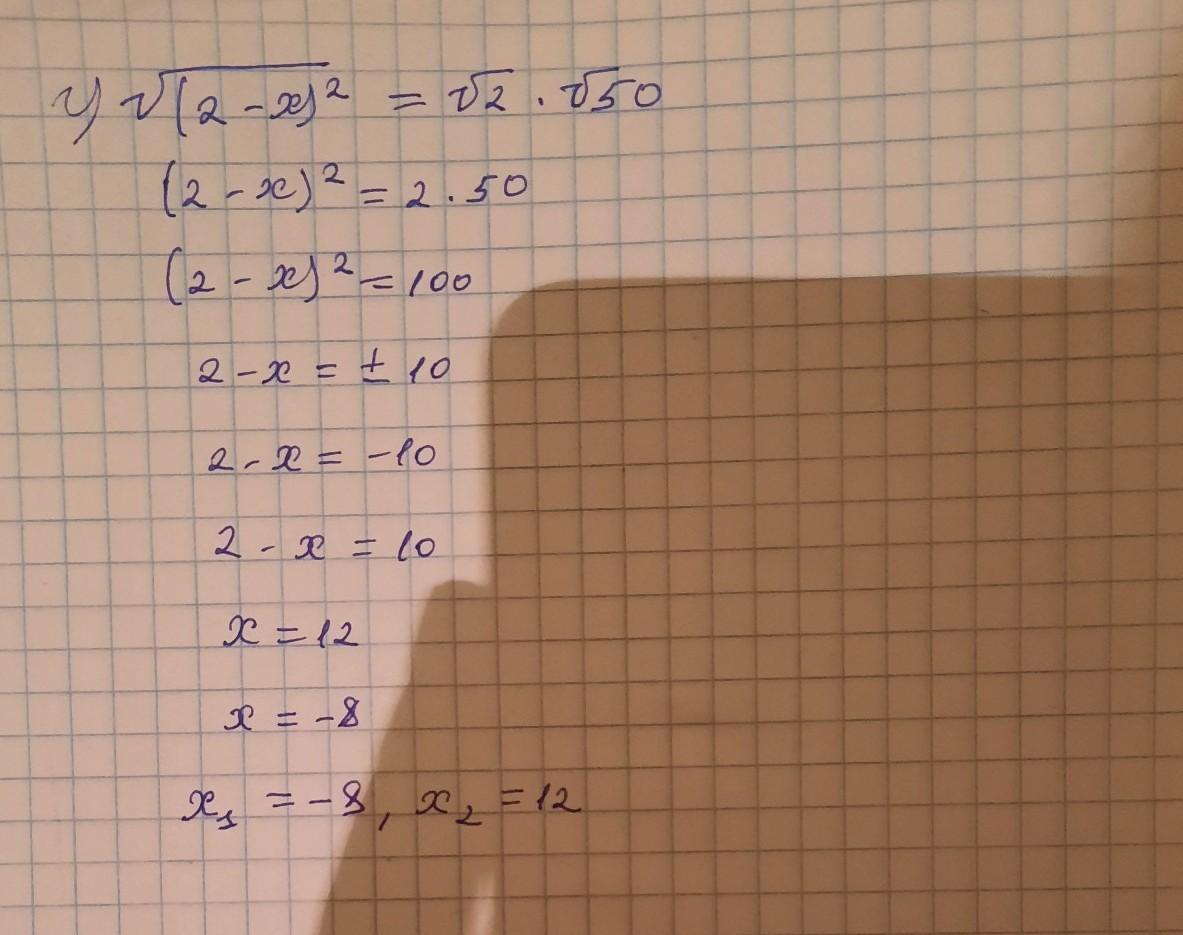 ч) √(2-x)² = √2 · √50
(2-x)² = 2 · 50
(2-x)² = 100
2-x = ± 10
2-x = -10
2-x = 10
x = 12
x = -8
x₁ = -8, x₂ = 12